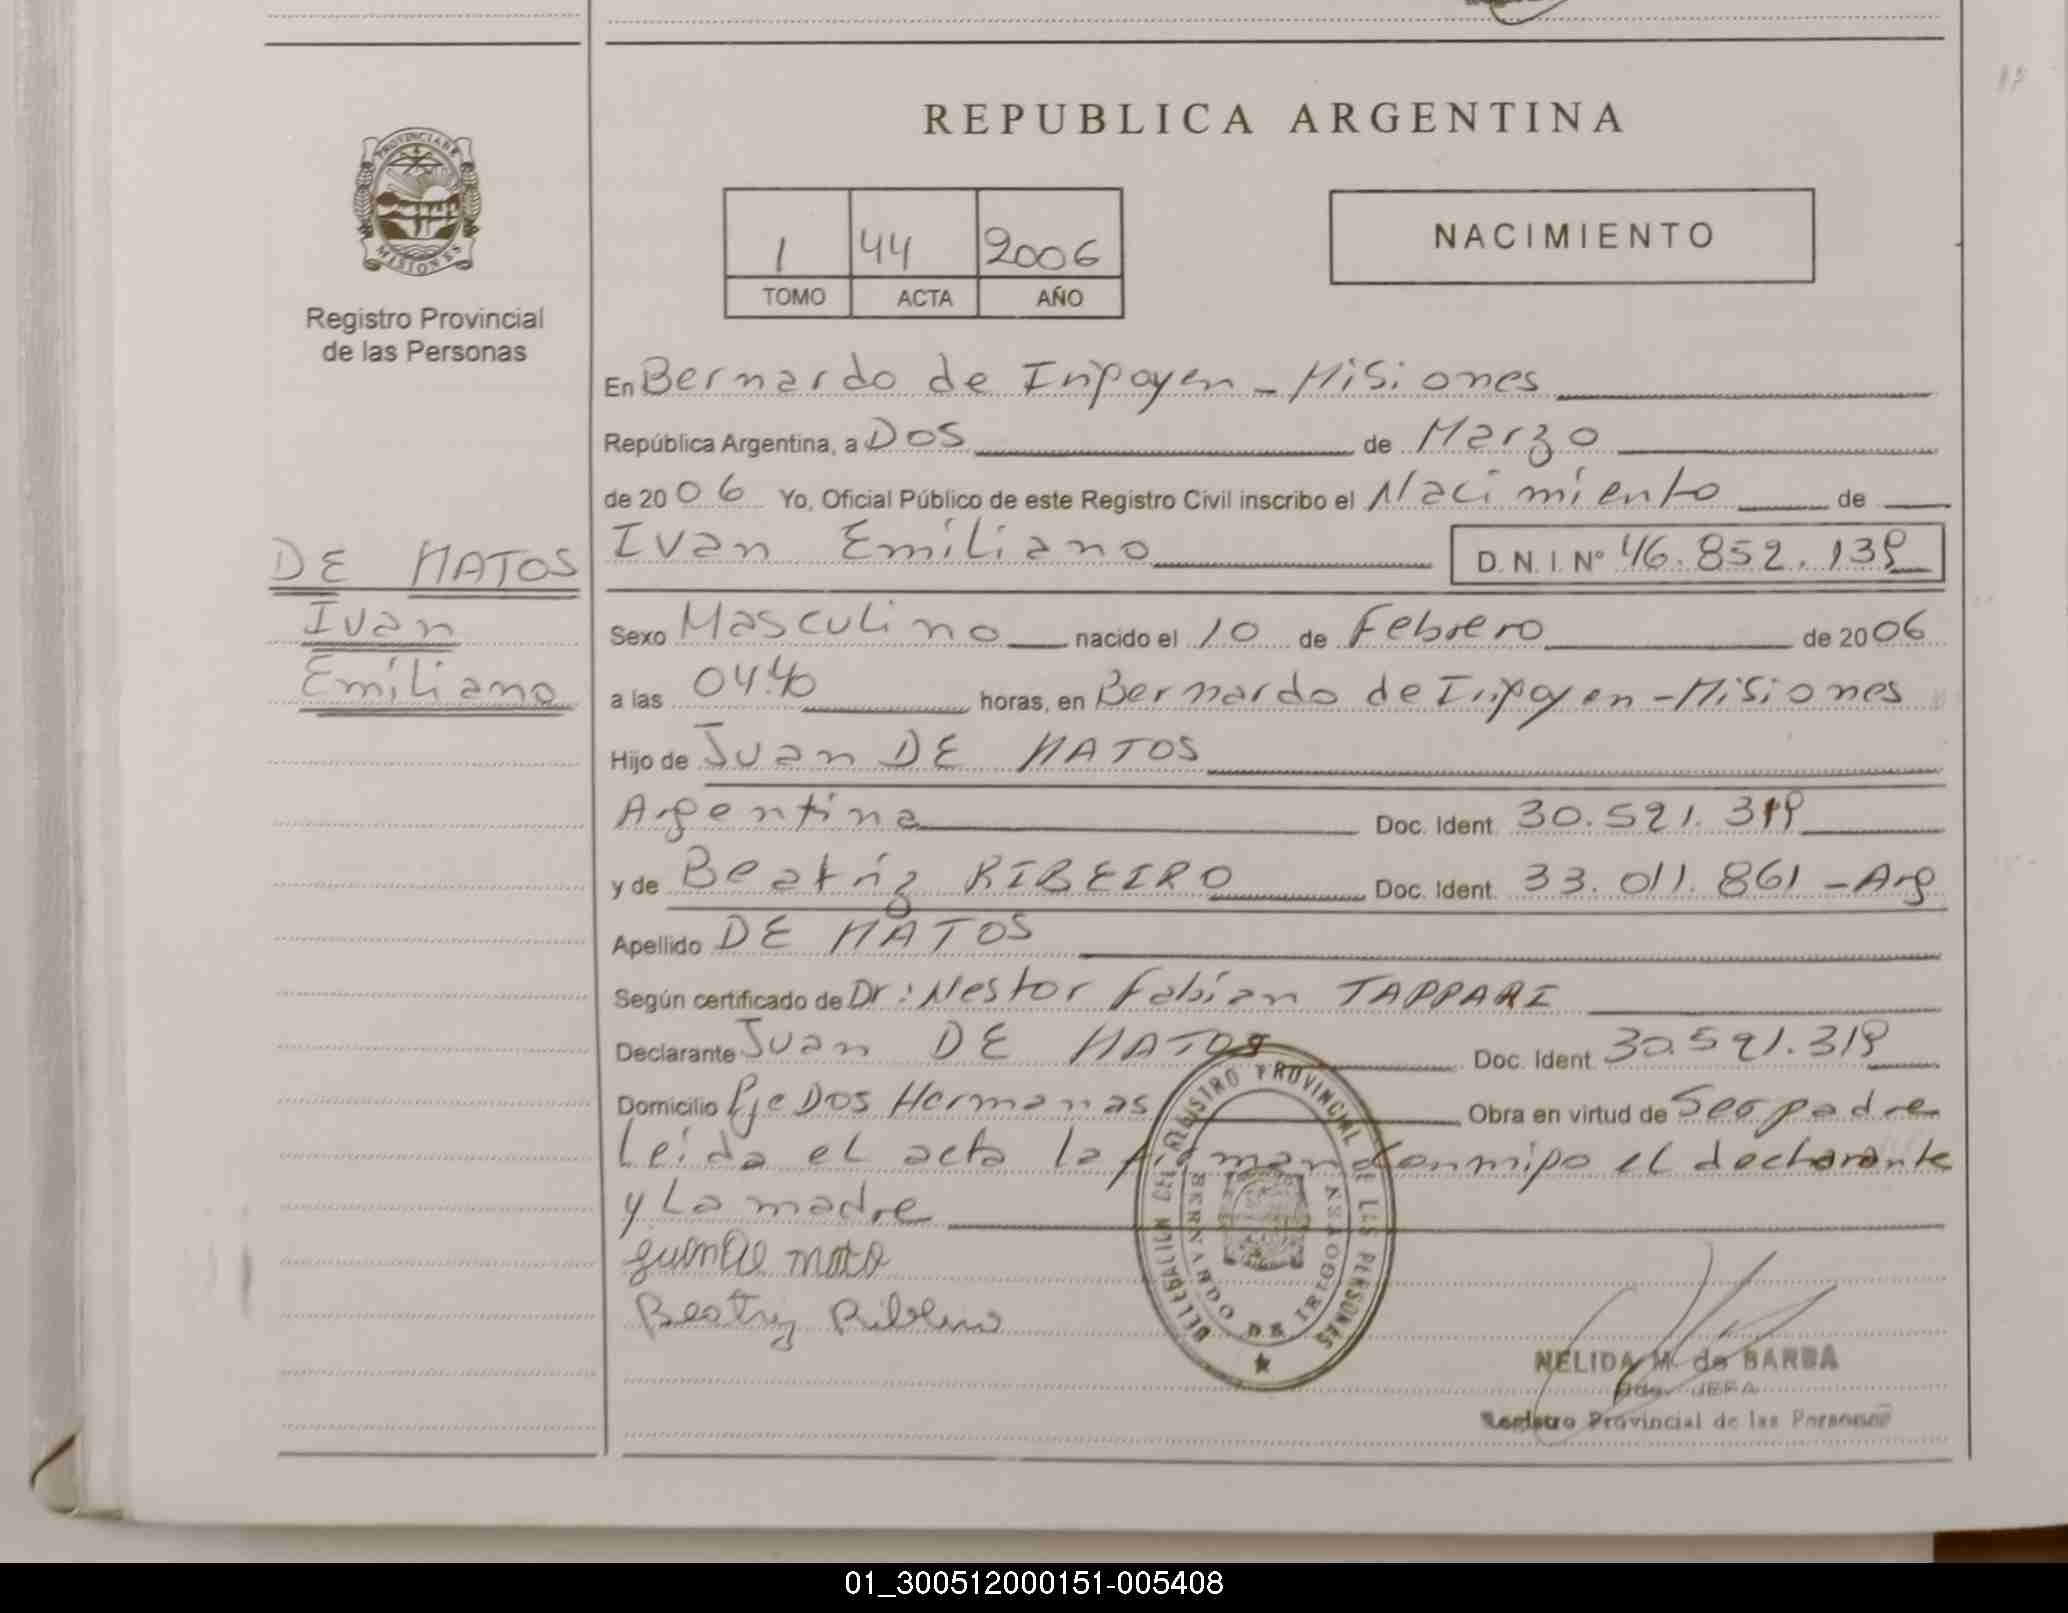 REPUBLICA ARGENTINA
PROVINCIA DE
MISIONES
Registro Provincial
de las Personas
1 44 2006
TOMO ACTA AÑO
NACIMIENTO
En Bernardo de Irigoyen - Misiones
República Argentina, a Dos de Marzo
de 2006 Yo, Oficial Público de este Registro Civil inscribo el Nacimiento de
Ivan Emiliano D. N. I. Nº 46.852.139
DE MATOS
Ivan
Emiliano
Sexo Masculino nacido el 10 de Febrero de 2006
a las 04.40 horas, en Bernardo de Irigoyen - Misiones
Hijo de Juan DE MATOS
Argentina Doc. Ident. 30.591.319
y de Beatriz RIBEIRO Doc. Ident. 33.011.861 - Arg
Apellido DE MATOS
Según certificado de Dr: Nestor Fabian TAPPARI
Declarante Juan DE MATOS Doc. Ident. 30.591.319
Domicilio Pje Dos Hermanas Obra en virtud de Ser padre
Leida el acta la firman conmigo el declarante
y La madre
Beatriz Ribeiro
DELEGACION DEL REGISTRO PROVINCIAL DE LAS PERSONAS
BERNARDO DE IRIGOYEN
NELIDA M. de BARBA
JEFA
Registro Provincial de las Personas
01_300512000151-005408